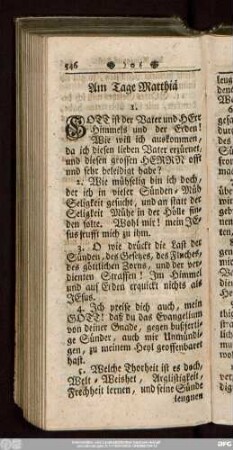 546 ) o (
Am Tage Matthiä
1.
GOTT ist der Vater und HErr
Himmels und der Erden!
Wie will ich auskommen,
da ich diesen lieben Vater erzürnet,
und diesen grossen HERRN offt
und sehr beleidigt habe?
2. Wie mühselig bin ich doch,
der ich in vieler Sünden-Müh
Seligkeit gesucht, und an statt der
Seligkeit Mühe in der Hölle fin-
den solte. Wohl mir! mein JE-
sus rufft mich zu ihm.
3. O wie drückt die Last der
Sünden, des Gesetzes, des Fluches,
des göttlichen Zorns, und der ver-
dienten Straffen! Im Himmel
und auf Erden erquickt nichts als
JEsus.
4. Ich preise dich auch, mein
GOTT! daß du das Evangelium
von deiner Gnade, gegen bußferti-
ge Sünder, auch mir Unmündi-
gen, zu meinem Heyl geoffenbaret
hast.
5. Welche Thorheit ist es doch,
Welt-Weisheit, Arglistigkeit,
Frechheit lernen, und seine Sünde
leugnen